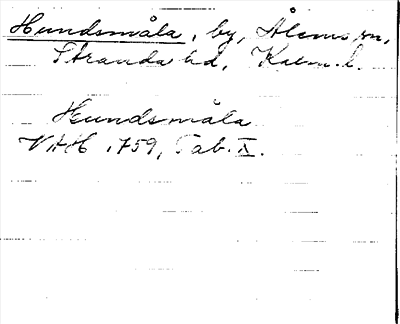 Hundsmåla, by, Ålems sn,
Stranda hd, Kalm. l.
Hundsmåla
VAH 1759, Tab. IX.